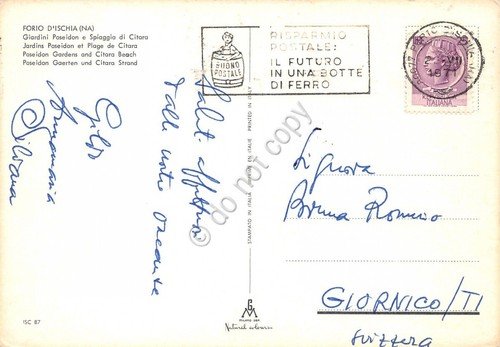 FORIO D'ISCHIA (NA)
Giardini Poseidon e Spiaggia di Citara
Jardins Poseidon et Plage de Citara
Poseidon Gardens and Citara Beach
Poseidon Gaerten und Citara Strand
BUONO
POSTALE
RISPARMIO
POSTALE:
IL FUTURO
IN UNA BOTTE
DI FERRO
1971
ITALIANA
Saluti affettuosi
dalle nostre vacanze
Annamaria
Silvana
STAMPATO IN ITALIA - IMPRIMÉ EN ITALIE - PRINTED IN ITALY
do not copy
Signora
Bruna Romerio
GIORNICO/TI
Svizzera
Natural colours
ISC 87